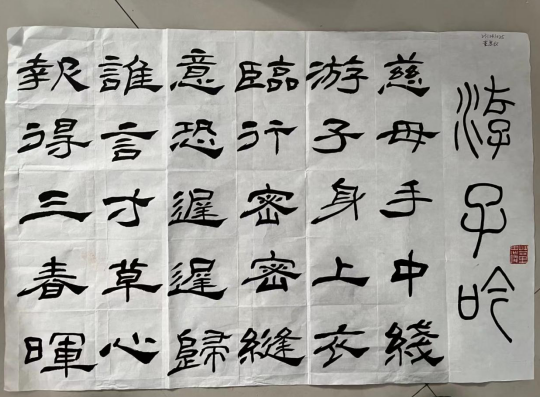 游子吟
慈母手中綫
游子身上衣
臨行密密縫
意恐遲遲歸
誰言寸草心
報得三春暉